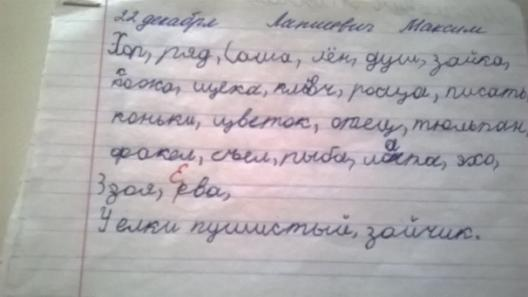 22 декабря Лапшевич Максим
Хоп, ряд, Саша, лён, душ, зайка,
кожа, щека, ключ, роща, писать
коньки, цветок, отец, тюльпан,
факел, съел, рыба, лапа, эхо,
Ззоя, Ерва,
У елки пушистый, зайчик.